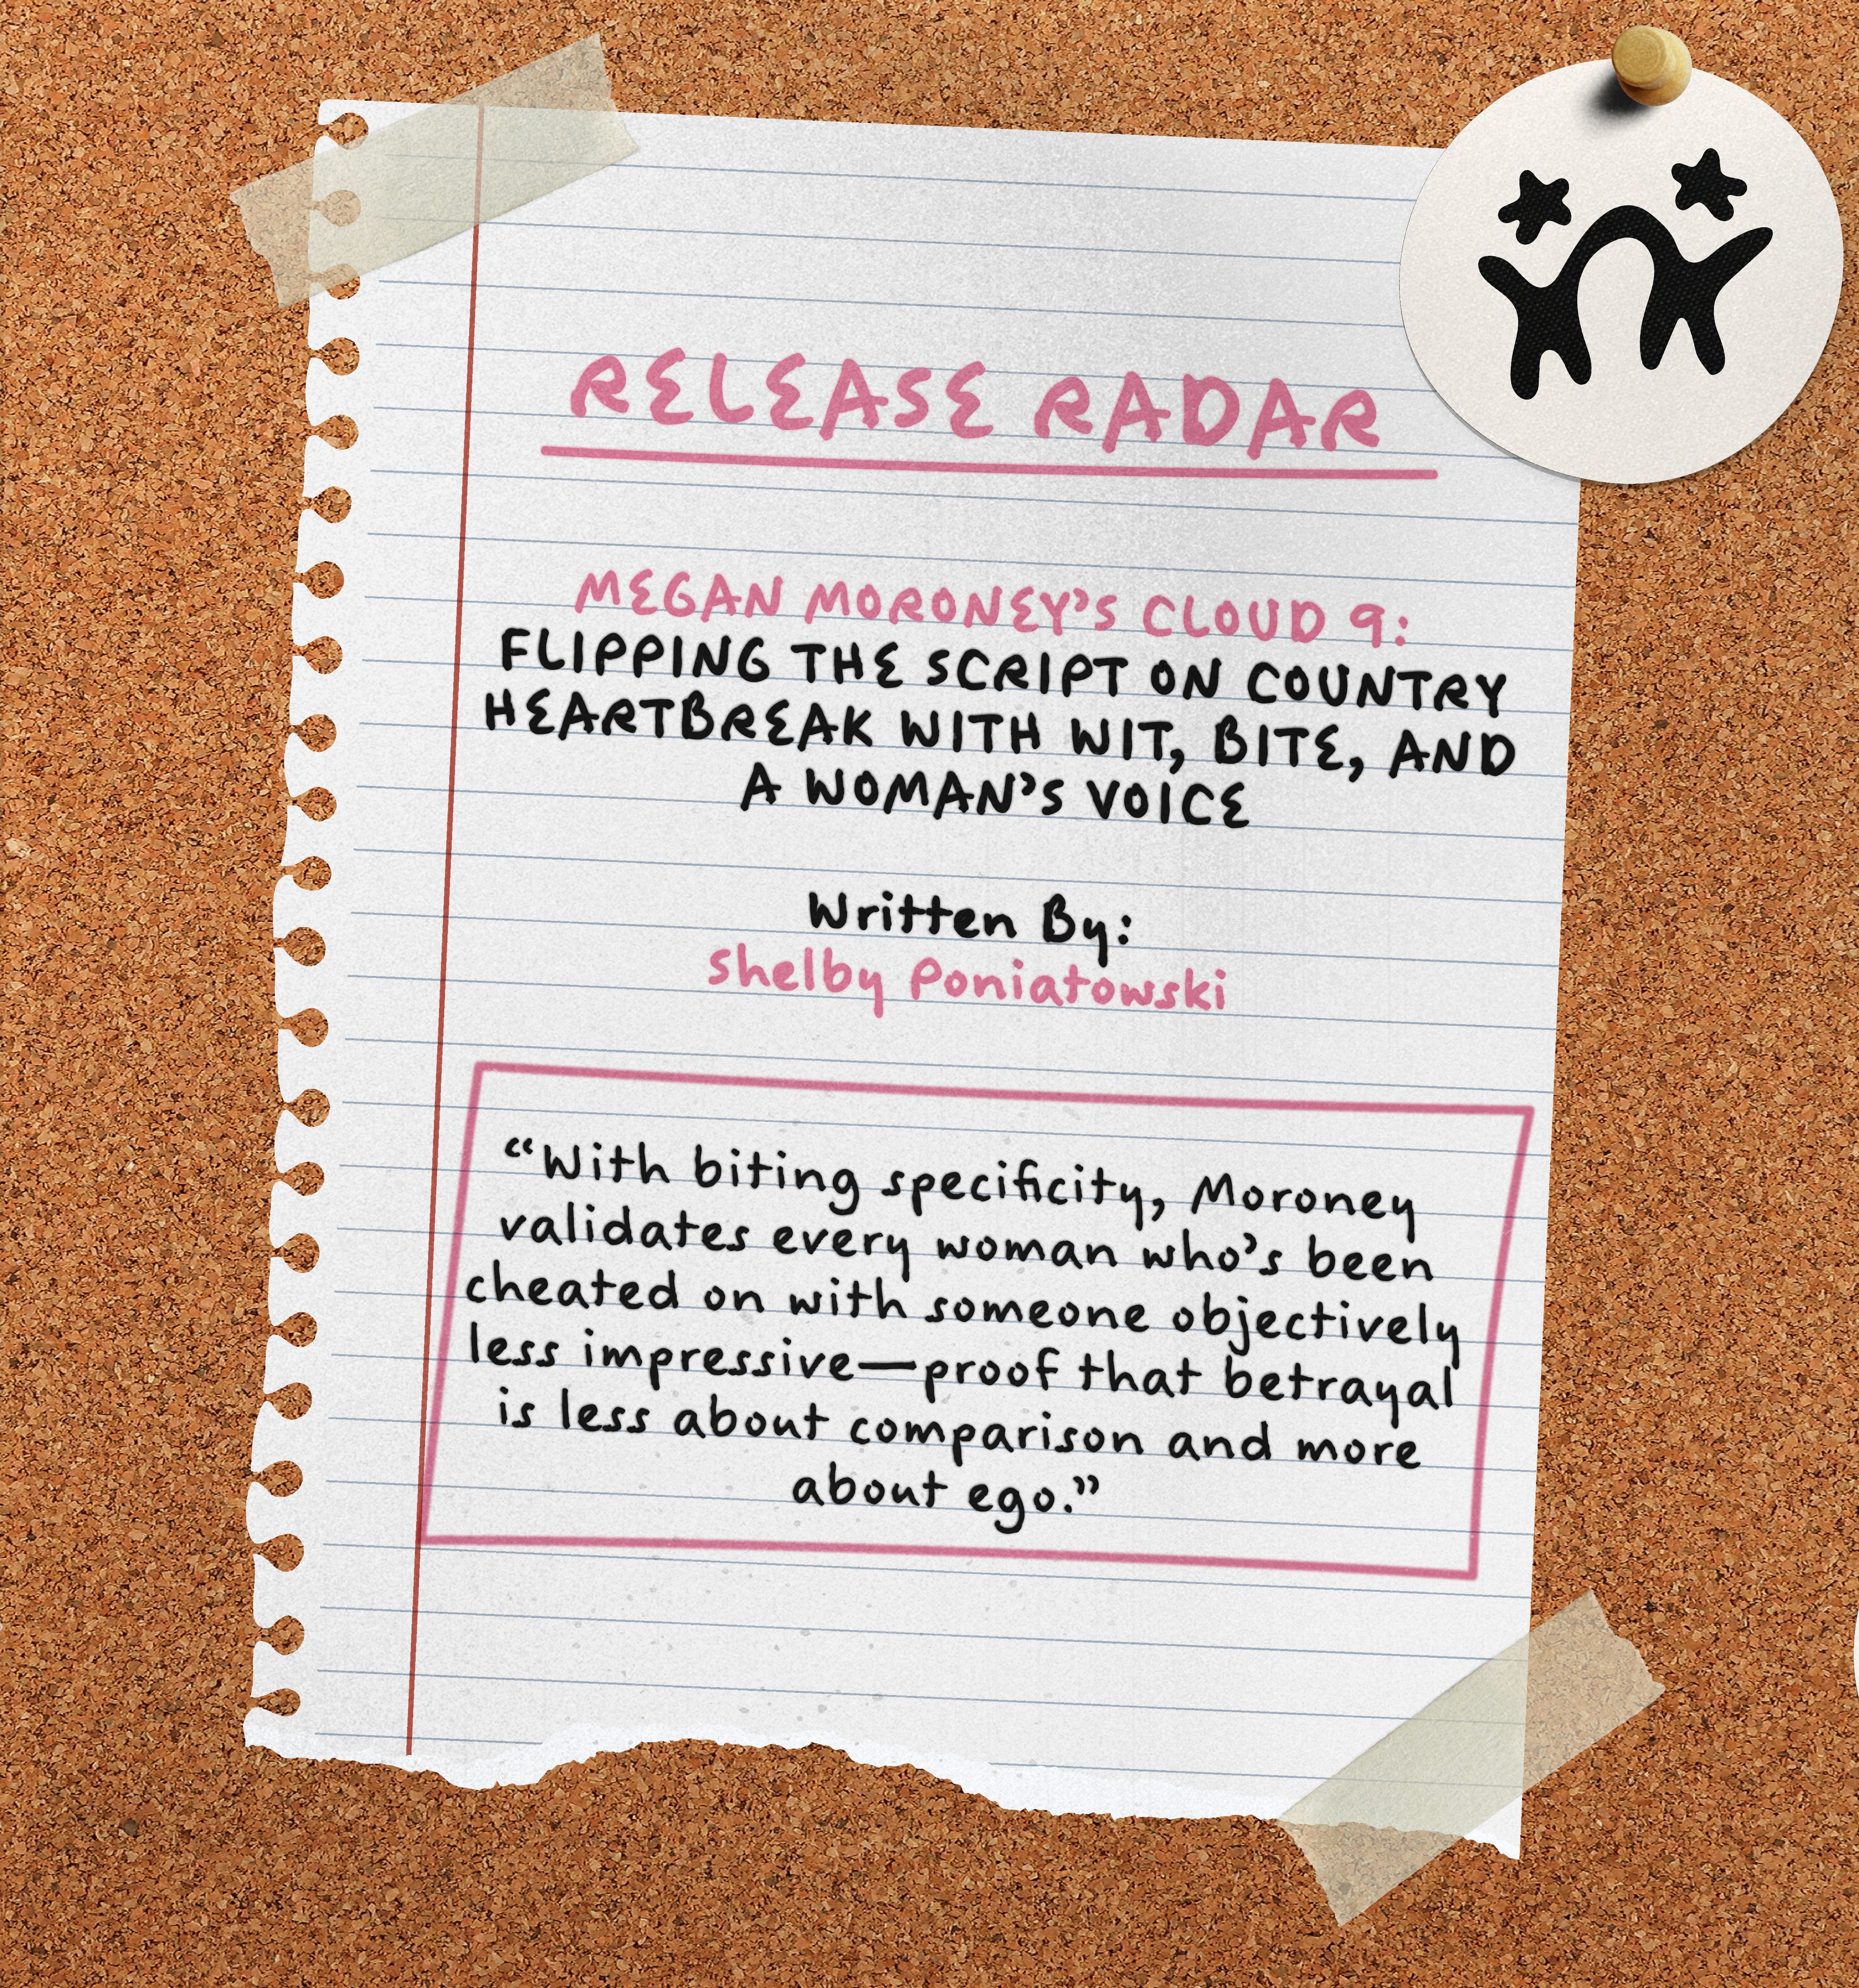 RELEASE RADAR
MEGAN MORONEY'S CLOUD 9:
FLIPPING THE SCRIPT ON COUNTRY
HEARTBREAK WITH WIT, BITE, AND
A WOMAN'S VOICE
Written By:
Shelby Poniatowski
“With biting specificity, Moroney
validates every woman who's been
cheated on with someone objectively
less impressive—proof that betrayal
is less about comparison and more
about ego.”